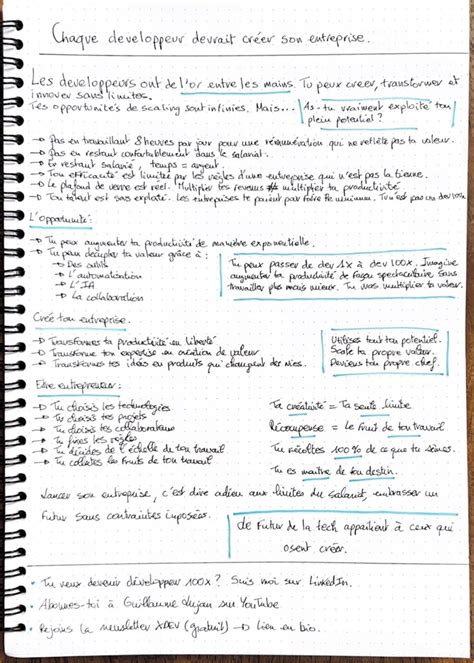 Chaque developpeur devrait créer son entreprise.
Les developpeurs ont de l'or entre les mains. Tu peux creer, transformer et
innover sans limites.
Tes opportunités de scaling sont infinies. Mais... As-tu vraiment exploité ton
plein potentiel ?
→ Pas en travaillant 8 heures par jour pour une rémunération qui ne reflète pas ta valeur.
→ Pas en restant confortablement dans le salariat.
→ En restant salarié, temps = argent.
→ Ton efficacité est limitée par les règles d'une entreprise qui n'est pas la tienne.
→ Le plafond de verre est réel. Multiplier tes revenus ≠ multiplier ta productivité
→ Ton talent est sous exploité. Les entreprises te paient pour faire le minimum. Tu n'es pas un dev 100x
L'opportunité:
→ Tu peux augmenter ta productivité de manière exponentielle.
→ Tu peux décupler ta valeur grâce à :
→ Des outils
→ L'automatisation
→ L'IA
→ La collaboration
Tu peux passer de dev 1x à dev 100x. Imagine
augmenter ta productivité de façon spectaculaire sans
travailler plus mais mieux. Tu vas multiplier ta valeur.
Créé ton entreprise.
→ Transformes ta productivité en liberté
→ Transforme ton expertise en création de valeur
→ Transformes tes idées en produits qui changent des vies.
Utilises tout ton potentiel.
Scale ta propre valeur.
Deviens ton propre chef.
Etre entrepreneur:
→ Tu choisis les technologies
→ Tu choisis tes projets
→ Tu choisis tes collaborateurs
→ Tu fixes les règles
→ Tu décides de l'échelle de ton travail
→ Tu collectes les fruits de ton travail
Ta créativité = Ta seule limite
Récompense = Le fruit de ton travail
Tu récoltes 100% de ce que tu sèmes.
Tu es maître de ton destin.
Lancer son entreprise, c'est dire adieu aux limites du salariat, embrasser un
futur sans contraintes imposées.
Le futur de la tech appartient à ceux qui
osent créer.
• Tu veux devenir développeur 100x ? Suis moi sur LinkedIn.
• Abonnes-toi à Guillaume Lujan sur YouTube
• Rejoins la newsletter XDEV (gratuit) → Lien en bio.